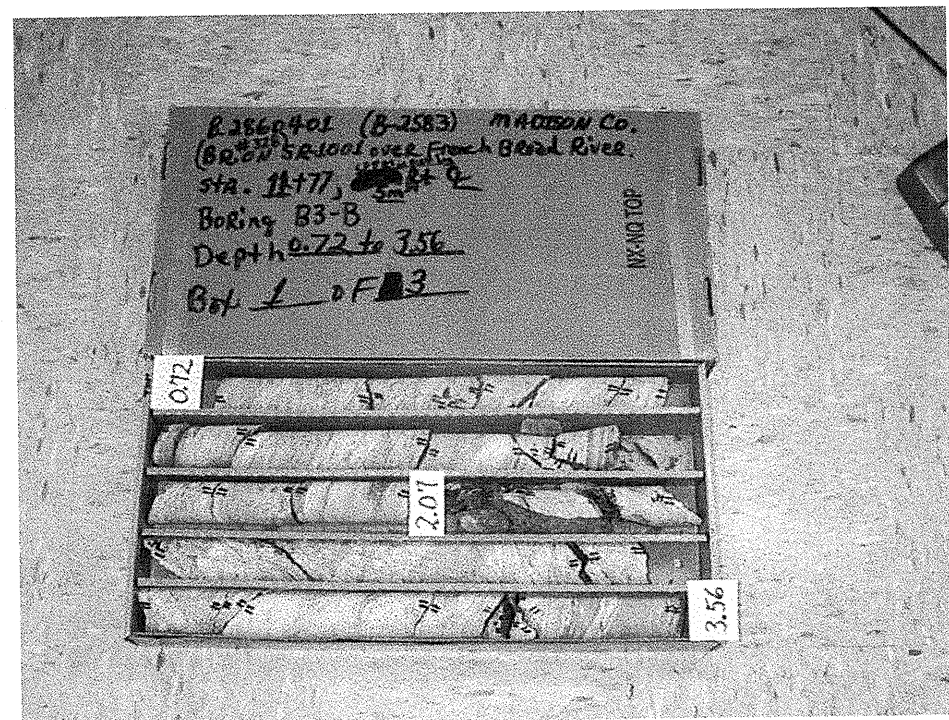 R286R401 (B-2583) MADISON Co.
(BR. ON SR1001 over French Broad River
Sta. 11+77, 5m Rt
Boring B3-B
Depth 0.72 to 3.56
Box 1 of 3
NX-NQ TOP
0.72
2.07
3.56